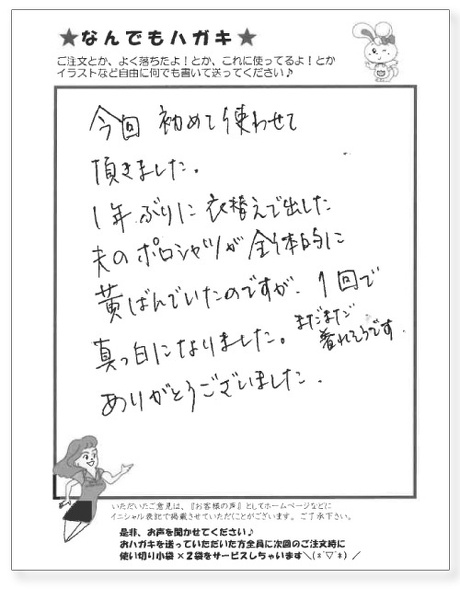 ★なんでもハガキ★
ご注文とか、よく落ちたよ!とか、これに使ってるよ!とか
イラストなど自由に何でも書いて送ってください♪
今回 初めて使わせて
頂きました。
1年ぶりに衣替えで出した
夫のポロシャツが全体的に
黄ばんでいたのですが、1回で
真っ白になりました。まだまだ
着れそうです.
ありがとうございました.
いただいたご意見は、『お客様の声』としてホームページなどに
イニシャル表記で掲載させていただことがございます。ご了承下さい。
是非、お声を聞かせてください♪
おハガキを送っていただいた方全員に次回のご注文時に
使い切り小袋×2袋をサービスしちゃいます＼(*´▽`*)／